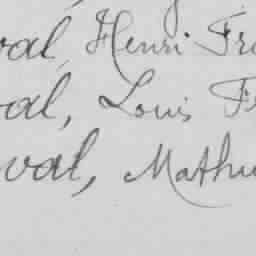 val, Henri Fr
val, Louis F
val, Mathu